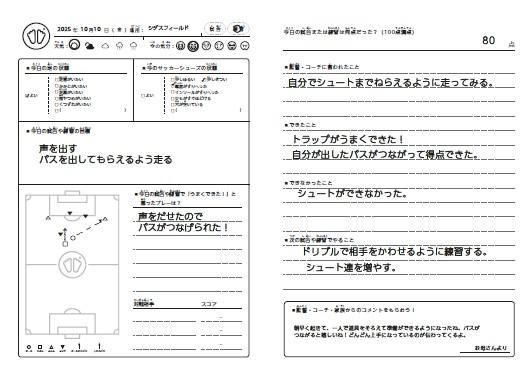 2025 年 10月10日 ( 金 ) 場所: シダスフィールド
天気:
今の気分:
■ 今日の足の状態
■ 今日のサッカーシューズの状態
よい
■ 今日の試合や練習の目標
声を出す
パスを出してもらえるよう走る
■ 今日の試合や練習で「うまくできた!」と
思ったプレーは?
声をだせたので
パスがつなげられた!
対戦相手
スコア
今日の試合または練習は何点だった? (100点満点)
80 点
■ 監督・コーチに言われたこと
自分でシュートまでねらえるように走ってみる。
■ できたこと
トラップがうまくできた!
自分が出したパスがつながって得点できた。
■ できなかったこと
シュートができなかった。
■ 次の試合や練習でやること
ドリブルで相手をかわせるように練習する。
シュート連を増やす。
■ 監督・コーチ・家族からのコメントをもらおう!
朝早く起きて、一人で道具をそろえて準備ができるようになったね。パスが
つながると嬉しいね!どんどん上手になっているのが伝わってくるよ。
お母さんより